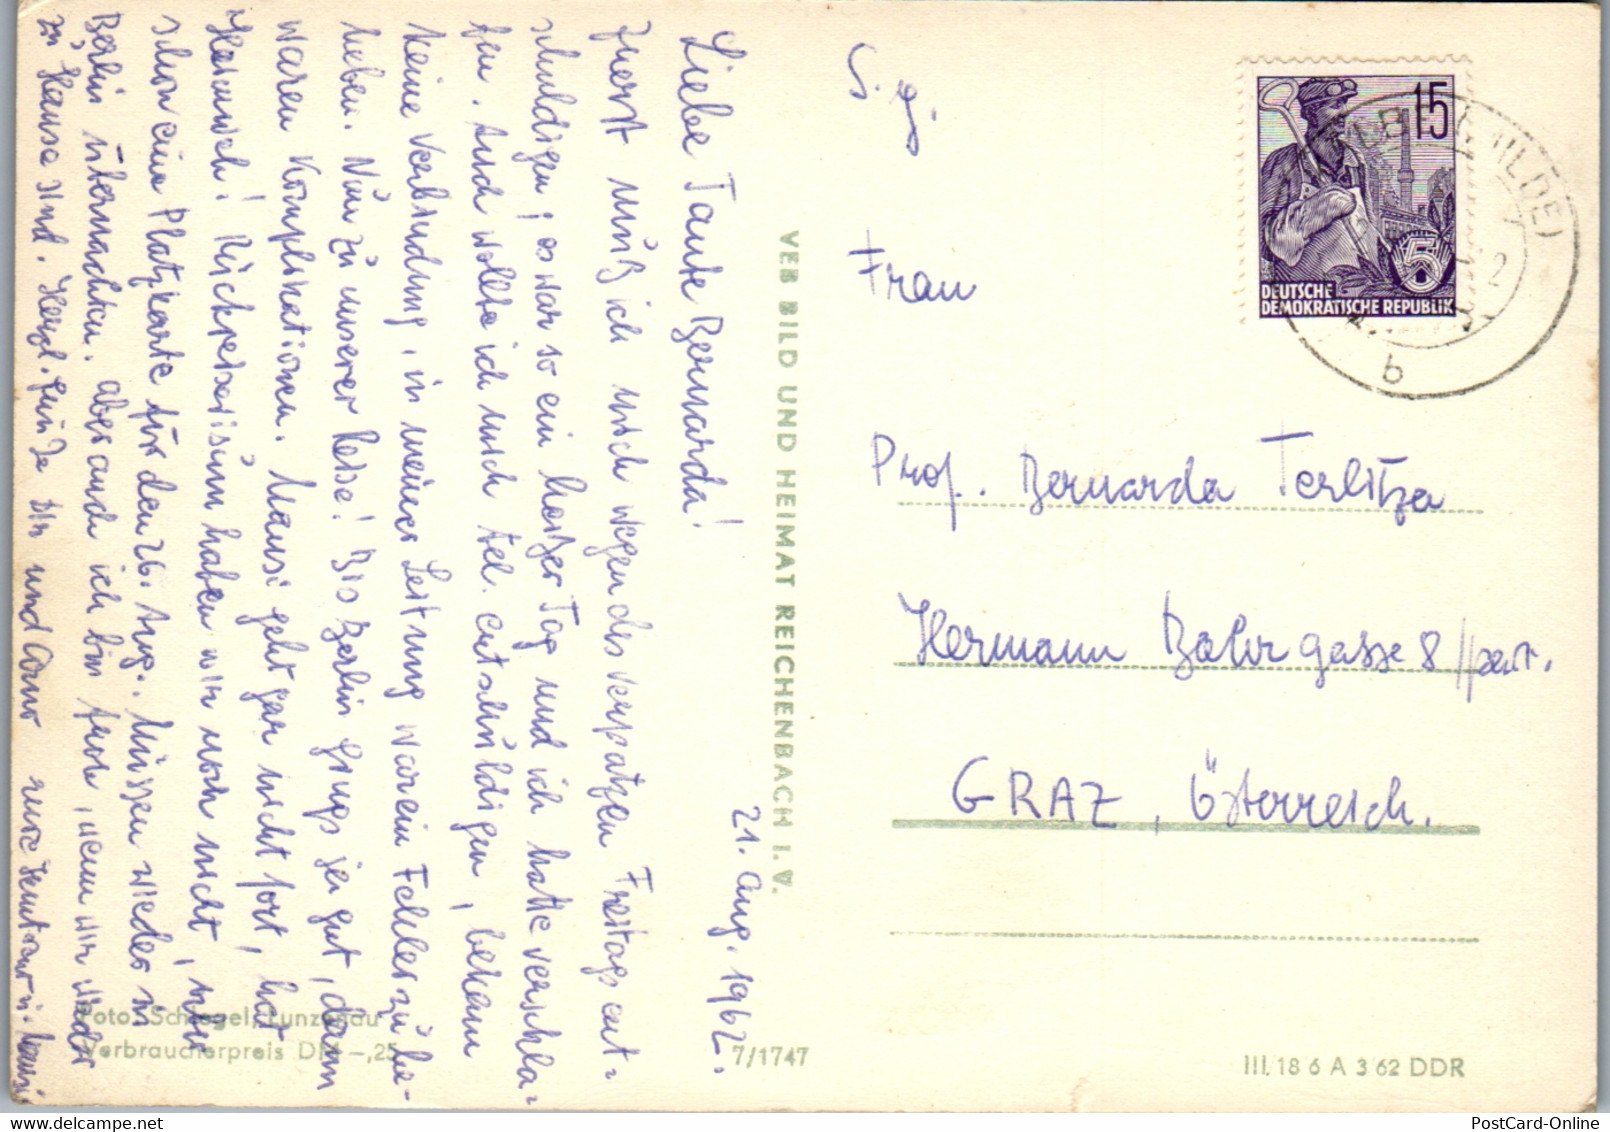 21. Aug. 1962.
Liebe Tante Bernarda!
Zuerst muß ich mich wegen des verpatzten Freitags ent-
schuldigen; es war so ein heißer Tag und ich hatte verschla-
fen. Auch wollte ich mich tel. entschuldigen, bekam
keine Verbindung, in meiner Leitung war ein Fehler zu be-
heben. Nun zu unserer Reise! Bis Berlin gings ja gut, dann
waren Komplikationen. Mausi geht gar nicht fort, hat
Heimweh! Rückreisevisum haben wir noch nicht, nur
schon eine Platzkarte für den 26. Aug.. Müssen wieder in
Berlin übernachten. Aber auch ich bin froh, wenn wir wieder
zu Hause sind. Herzl. Grüße Dir und
S. g.
Frau
Prof. Bernarda Terlitza
Hermann Bahr gasse 8 / part.
GRAZ, Österreich.
VEB BILD UND HEIMAT REICHENBACH I. V.
Foto: Schlegel, Lunzenau
Verbraucherpreis DM -,25
7/1747
III. 18 6 A 3 62 DDR
15
5
DEUTSCHE
DEMOKRATISCHE REPUBLIK
MILDE)
b
PostCard-Online